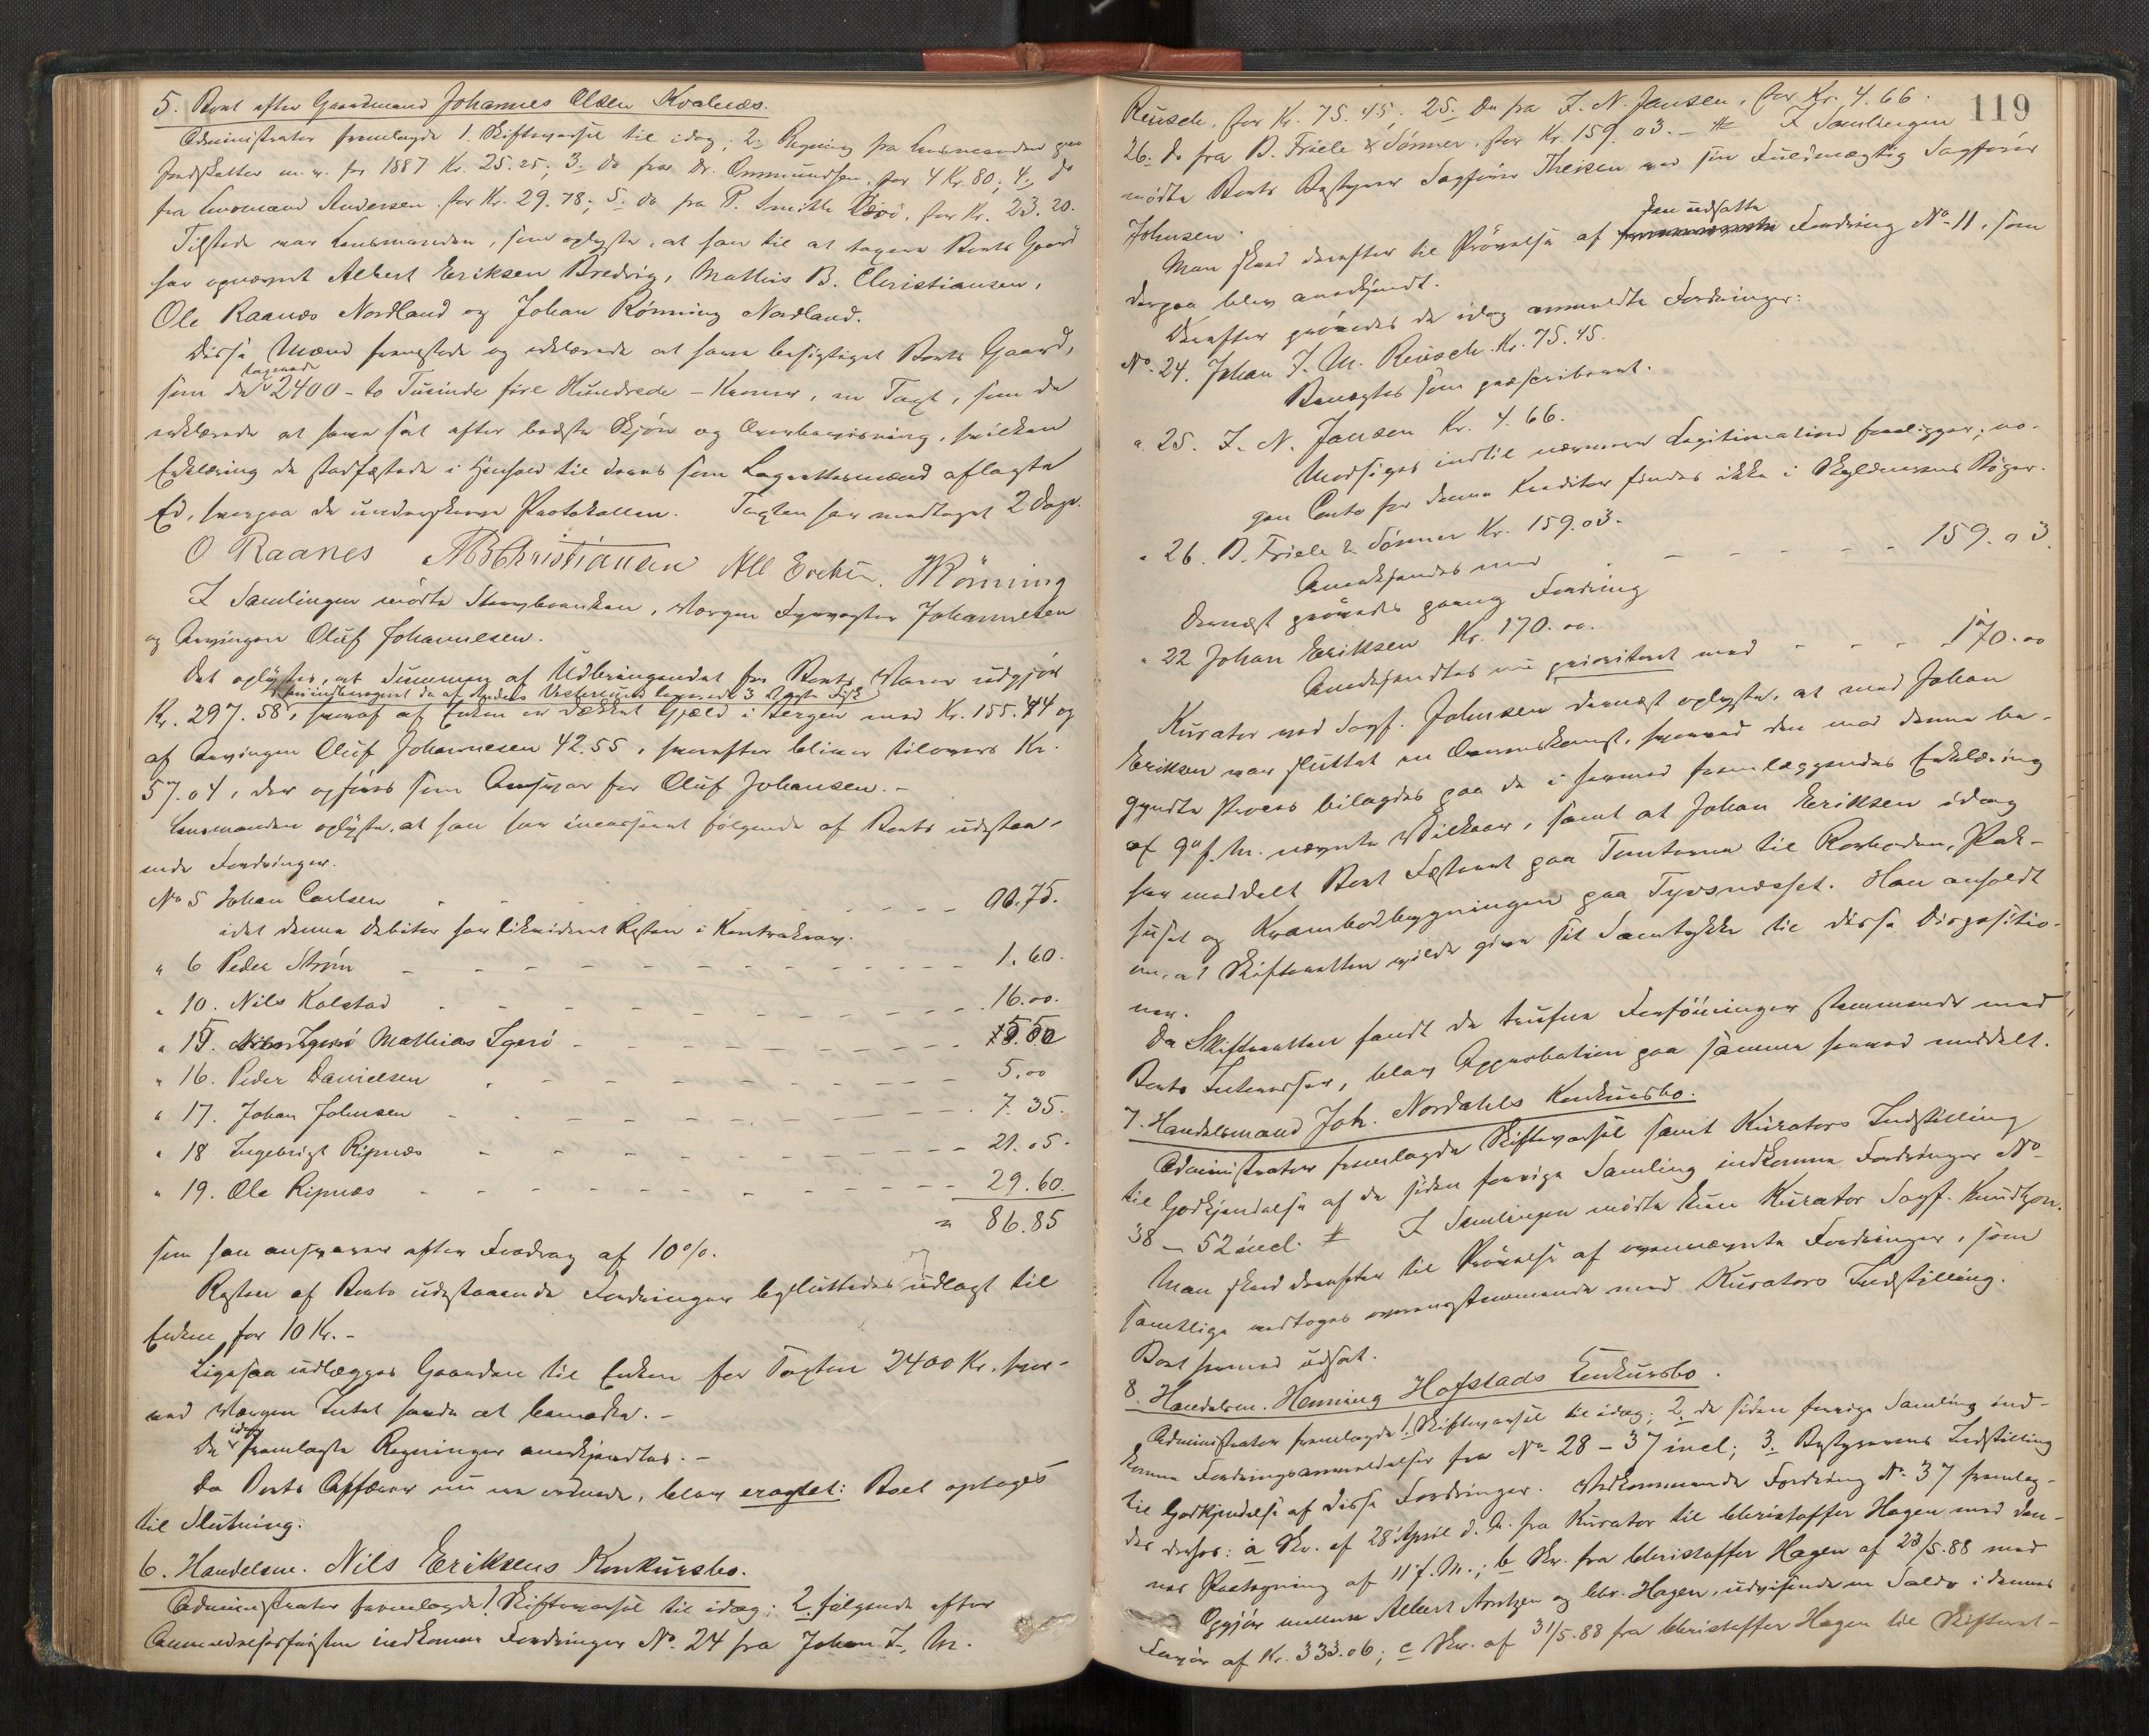 5. Boet efter Gaardmand Johannes Olsen Kvalnæs.
Administrator fremlagde 1. Skiftevarsel til idag; 2. Regning fra Lensmanden paa
Jordskatter m. v. for 1887 Kr. 25.25; 3. do fra Dr. Ommundsen for 4 Kr. 80; 4. do
fra Lensmand Andersen for Kr. 29.78; 5. do fra P. Smith for Kr. 23.20.
Tilstede var Lensmanden, som oplyste, at han til at taxere Boets Gaard
har opnævnt Albert Eriksen Bredvig, Mathis B. Christiansen,
Ole Raanæs Nordland og Johan Rönning Nordland.
Disse Mænd fremstode og erklærede at have besigtiget Boets Gaard,
som de taxerede 2400 - to Tusinde fire Hundrede - Kroner, en Taxt, som de
erklærede at have sat efter bedste Skjön og Overbevisning, hvilken
Erklæring de stadfæstede i Henhold til deres som Lagrettesmænd aflagte
Ed, hvorpaa de underskrev Protokollen. Taxten har medtaget 2 Dage.
O Raanes MBChristiansen Alb Eriksen. JRönning
I Samlingen mödte Stervboenken, Værgen Johannesen
og Arvingen Oluf Johannesen.
Det oplystes, at Summen af Udbringendet for Boets Varer udgjör
iberegnet de af Anders leverede 3 Vægter Fisk
Kr. 297.58, hvoraf af Enken er dækket Gjæld i Bergen med Kr. 155.44 og
af Arvingen Oluf Johannesen 42.55, hvorefter bliver tilovers Kr.
57.04, der opföres som Ansvar for Oluf Johansen. -
Lensmanden oplyste, at han har incasseret fölgende af Boets udestaa-
ende Fordringer.
No 5 Johan Carlsen - - - 00.75.
idet denne Debitor har likvideret Resten i Kontrakrav.
" 6 Peder Ström - - - 1.60.
" 10. Nils Kolstad - - - 16.00.
" 15. Mathias Igerö - - - 5.50
" 16. Peder Danielsen - - - 5.00
" 17. Johan Johnsen - - - 7.35.
" 18 Ingebrigt Ripnæs - - - 21.05.
" 19. Ole Ripnæs - - - 29.60.
= 86.85
som han ansvarer efter Fradrag af 10%.
Resten af Boets udestaaende Fordringer besluttedes udlagt til
Enken for 10 Kr. -
Ligesaa udlægges Gaarden til Enken for Taxten 2400 Kr. hvor-
ved Værgen Intet havde at bemærke. -
De idag fremlagte Regninger anerkjendtes. -
Da Boets Affærer nu var ordnede, blev eragtet: Boet optages
til Slutning.
6. Handelsm. Nils Eriksens Konkursbo.
Administrator fremlagde 1. Skiftevarsel til idag; 2. fölgende efter
Anmeldelsesfristen indkomne Fordringer No. 24 fra Johan F. M.
119
Reusch, for Kr. 75.45; 25. Do fra J. N. Jansen, for Kr. 4.66.
26. Do fra D. Friele & Sönner, for Kr. 159.03. - # I Samlingen
mödte Boets Bestyrer Sagförer Theisen ved sin Fuldmægtig Sagförer
Johnsen.
Man skred derefter til Prövelse af den udsatte Fordring No 11, som
derpaa blev anerkjendt.
Derefter prövedes de idag anmeldte Fordringer:
No. 24. Johan F. M. Reusch. Kr. 75.45.
Benegtes som præscriberet.
" 25. J. N. Jansen Kr. 4.66.
Modsiges indtil nærmere Legitimation foreligger; no-
gen Conto for denne Kreditor findes ikke i Skyldnerens Böger.
" 26. D. Friele & Sönner Kr. 159.03.
Anerkjendes med - - - 159.03.
Dernæst prövedes paany Fordring
" 22 Johan Eriksen Kr. 170.00.
Anerkjendtes nu prioriteret med - - - 170.00
Kurator ved Sagf. Johnsen dernæst oplyste, at med Johan
Eriksen var sluttet en Overenskomst, hvorved den mod denne be-
gyndte Proces bilagdes paa de i hermed fremlæggendes Erklæring
af 9de f. M. nævnte Vilkaar, samt at Johan Eriksen idag
har meddelt Boet Festeret paa Tomterne til Rorboden, Pak-
huset og Krambodbygningen paa Tyvsnæsset. Han anholdt
om, at Skifteretten vilde give sit Samtykke til disse Dispositio-
ner.
Da Skifteretten fandt de trufne Forföininger stemmende med
Boets Interesser, blev Approbation paa samme herved meddelt.
7. Handelsmand Joh. Nordahls Konkursbo.
Administrator fremlagde Skiftevarsel samt Kurators Indstilling
til Godkjendelse af de siden forrige Samling indkomne Fordringer No
38 - 52 incl. # I Samlingen mödte kun Kurator Sagf. Knudtzon.
Man skred derefter til Prövelse af ovennævnte Fordringer, som
samtlige vedtoges overensstemmende med Kurators Indstilling.
Boet herved udsat.
8. Handelsm. Henning Hofstads Konkursbo.
Administrator fremlagde 1. Skiftevarsel til idag; 2. de siden forrige Samling ind-
komne Fordringsanmeldelser fra No 28 - 37 incl; 3. Bestyrerens Indstilling
til Godkjendelse af disse Fordringer. Vedkommende Fordring No. 37 fremlag-
des derhos: a Skr. af 28 April d. A. fra Kurator til Christoffer Hagen med den-
nes Paategning af 11 f. M.; b Skr. fra Christoffer Hagen af 23/5.88 med
Opgjör mellem Albert Arntzen og Chr. Hagen, udvisende en Saldo i dennes
Favör af Kr. 333.06; c Skr. af 31/5.88 fra Christoffer Hagen til Skifteret-